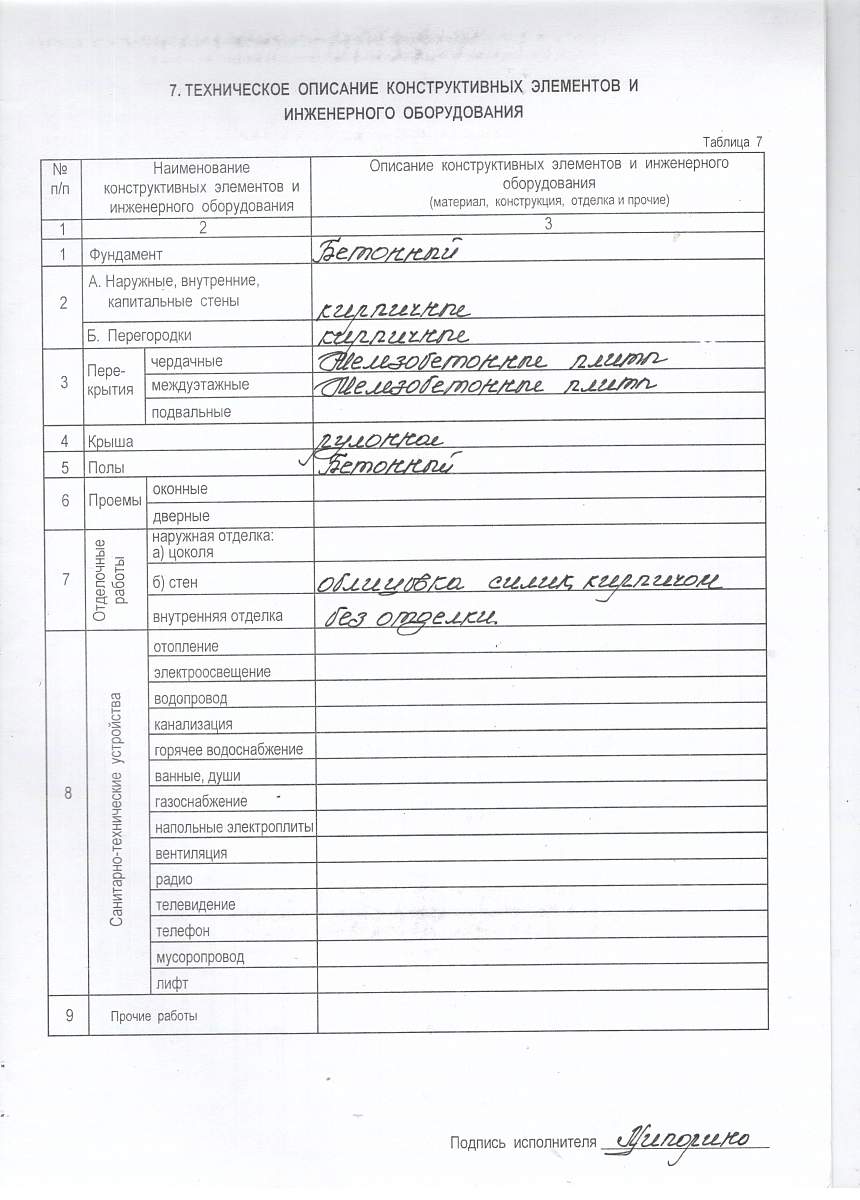 7. ТЕХНИЧЕСКОЕ ОПИСАНИЕ КОНСТРУКТИВНЫХ ЭЛЕМЕНТОВ И
ИНЖЕНЕРНОГО ОБОРУДОВАНИЯ
Таблица 7
№ п/п
Наименование
конструктивных элементов и
инженерного оборудования
Описание конструктивных элементов и инженерного
оборудования
(материал, конструкция, отделка и прочие)
1 2 3
1 Фундамент Бетонный
2 А. Наружные, внутренние,
капитальные стены кирпичные
Б. Перегородки кирпичные
3 Пере-
крытия
чердачные Железобетонные плиты
междуэтажные Железобетонные плиты
подвальные
4 Крыша рулонное
5 Полы Бетонный
6 Проемы
оконные
дверные
7 Отделочные
работы
наружная отделка:
а) цоколя
б) стен облицовка силик. кирпичом
внутренняя отделка без отделки.
8 Санитарно-технические устройства
отопление
электроосвещение
водопровод
канализация
горячее водоснабжение
ванные, души
газоснабжение
напольные электроплиты
вентиляция
радио
телевидение
телефон
мусоропровод
лифт
9 Прочие работы
Подпись исполнителя